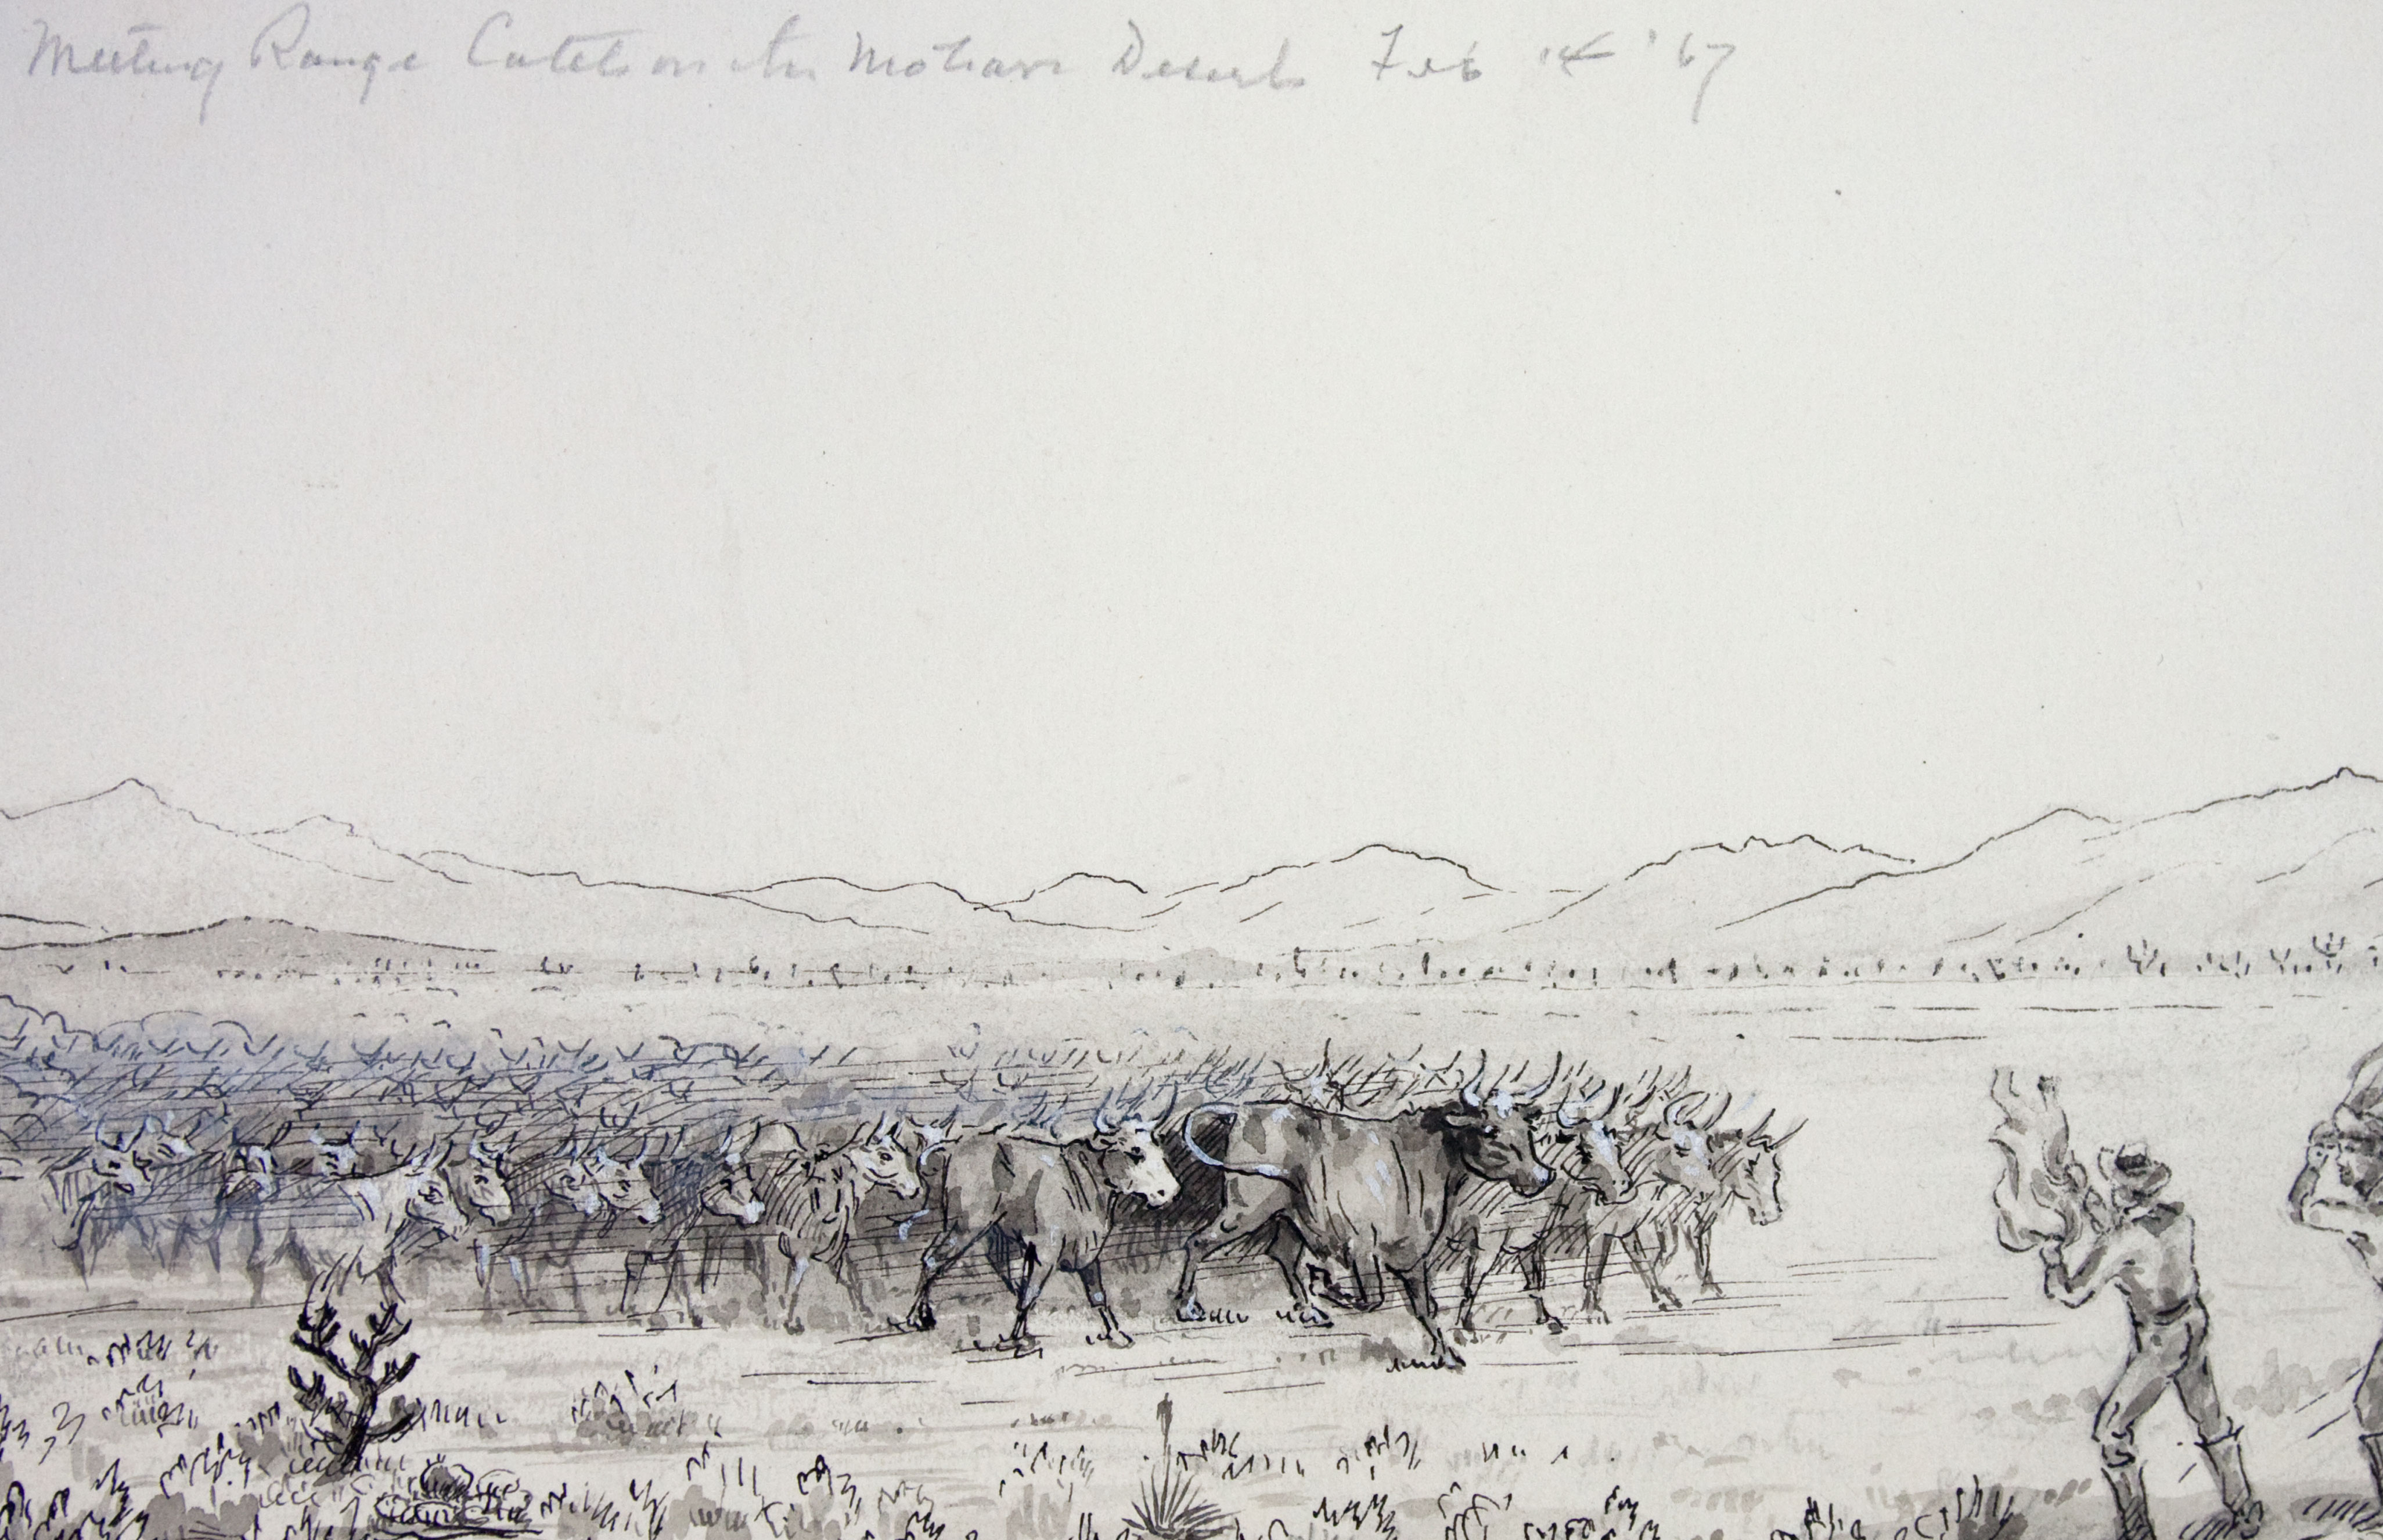 Meeting Range Cattle on the Mohave Desert Feb 14 '67